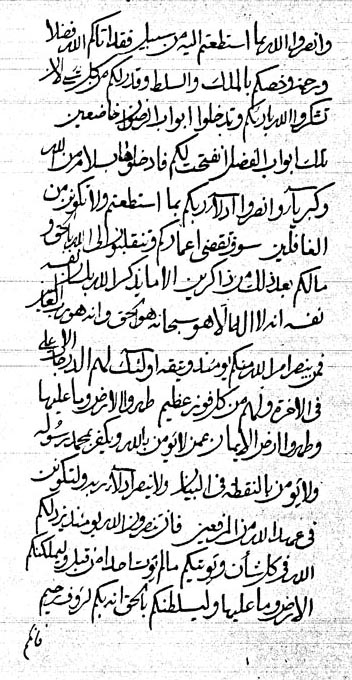 وانصروا الله بما استطعتم اليه من سبيل فقد اتاكم الله فضلا
ورحمة وخصكم بالملك والسلط وقدر لكم من كل شيء لان
تشكروا الله ربكم وتدخلوا ابواب الرضوان خاضعين
تلك ابواب الفضل انفتحت لكم فادخلوها بسلام من الله
وكبرياء وانصروا الله ربكم بما استطعتم ولا تكونن من
الغافلين سوف تقضي اعماركم وتنقلبون الى الله بالحق و
مالكم بعد ذلك من ذاكرين الا ما يذكر الله بلسان نفسه
نفسه انه لا اله الا هو سبحانه هو الحق وانه هو رب العالمين
فمن ينصر امر الله منكم يومئذ ويتقه اولئك لهم الدرجات الاعلى
في الاخرة ولهم من كل فوز عظيم طهروا الارض وما عليها
وطهروا ارض الايمان عمن لا يؤمن بالله ويكفر بمحمد رسوله
ولا يؤمن بالنقطة في البيان ولا ينصر الله ربه ولتكونن
في عهد الله من فان تنصروا الله يومئذ
الله في كل شأن ويؤتيكم ما لم يؤت احدا من قبل وليملكنكم
الارض وما عليها وليسلطنكم بالحق انه بكم لرؤف رحيم